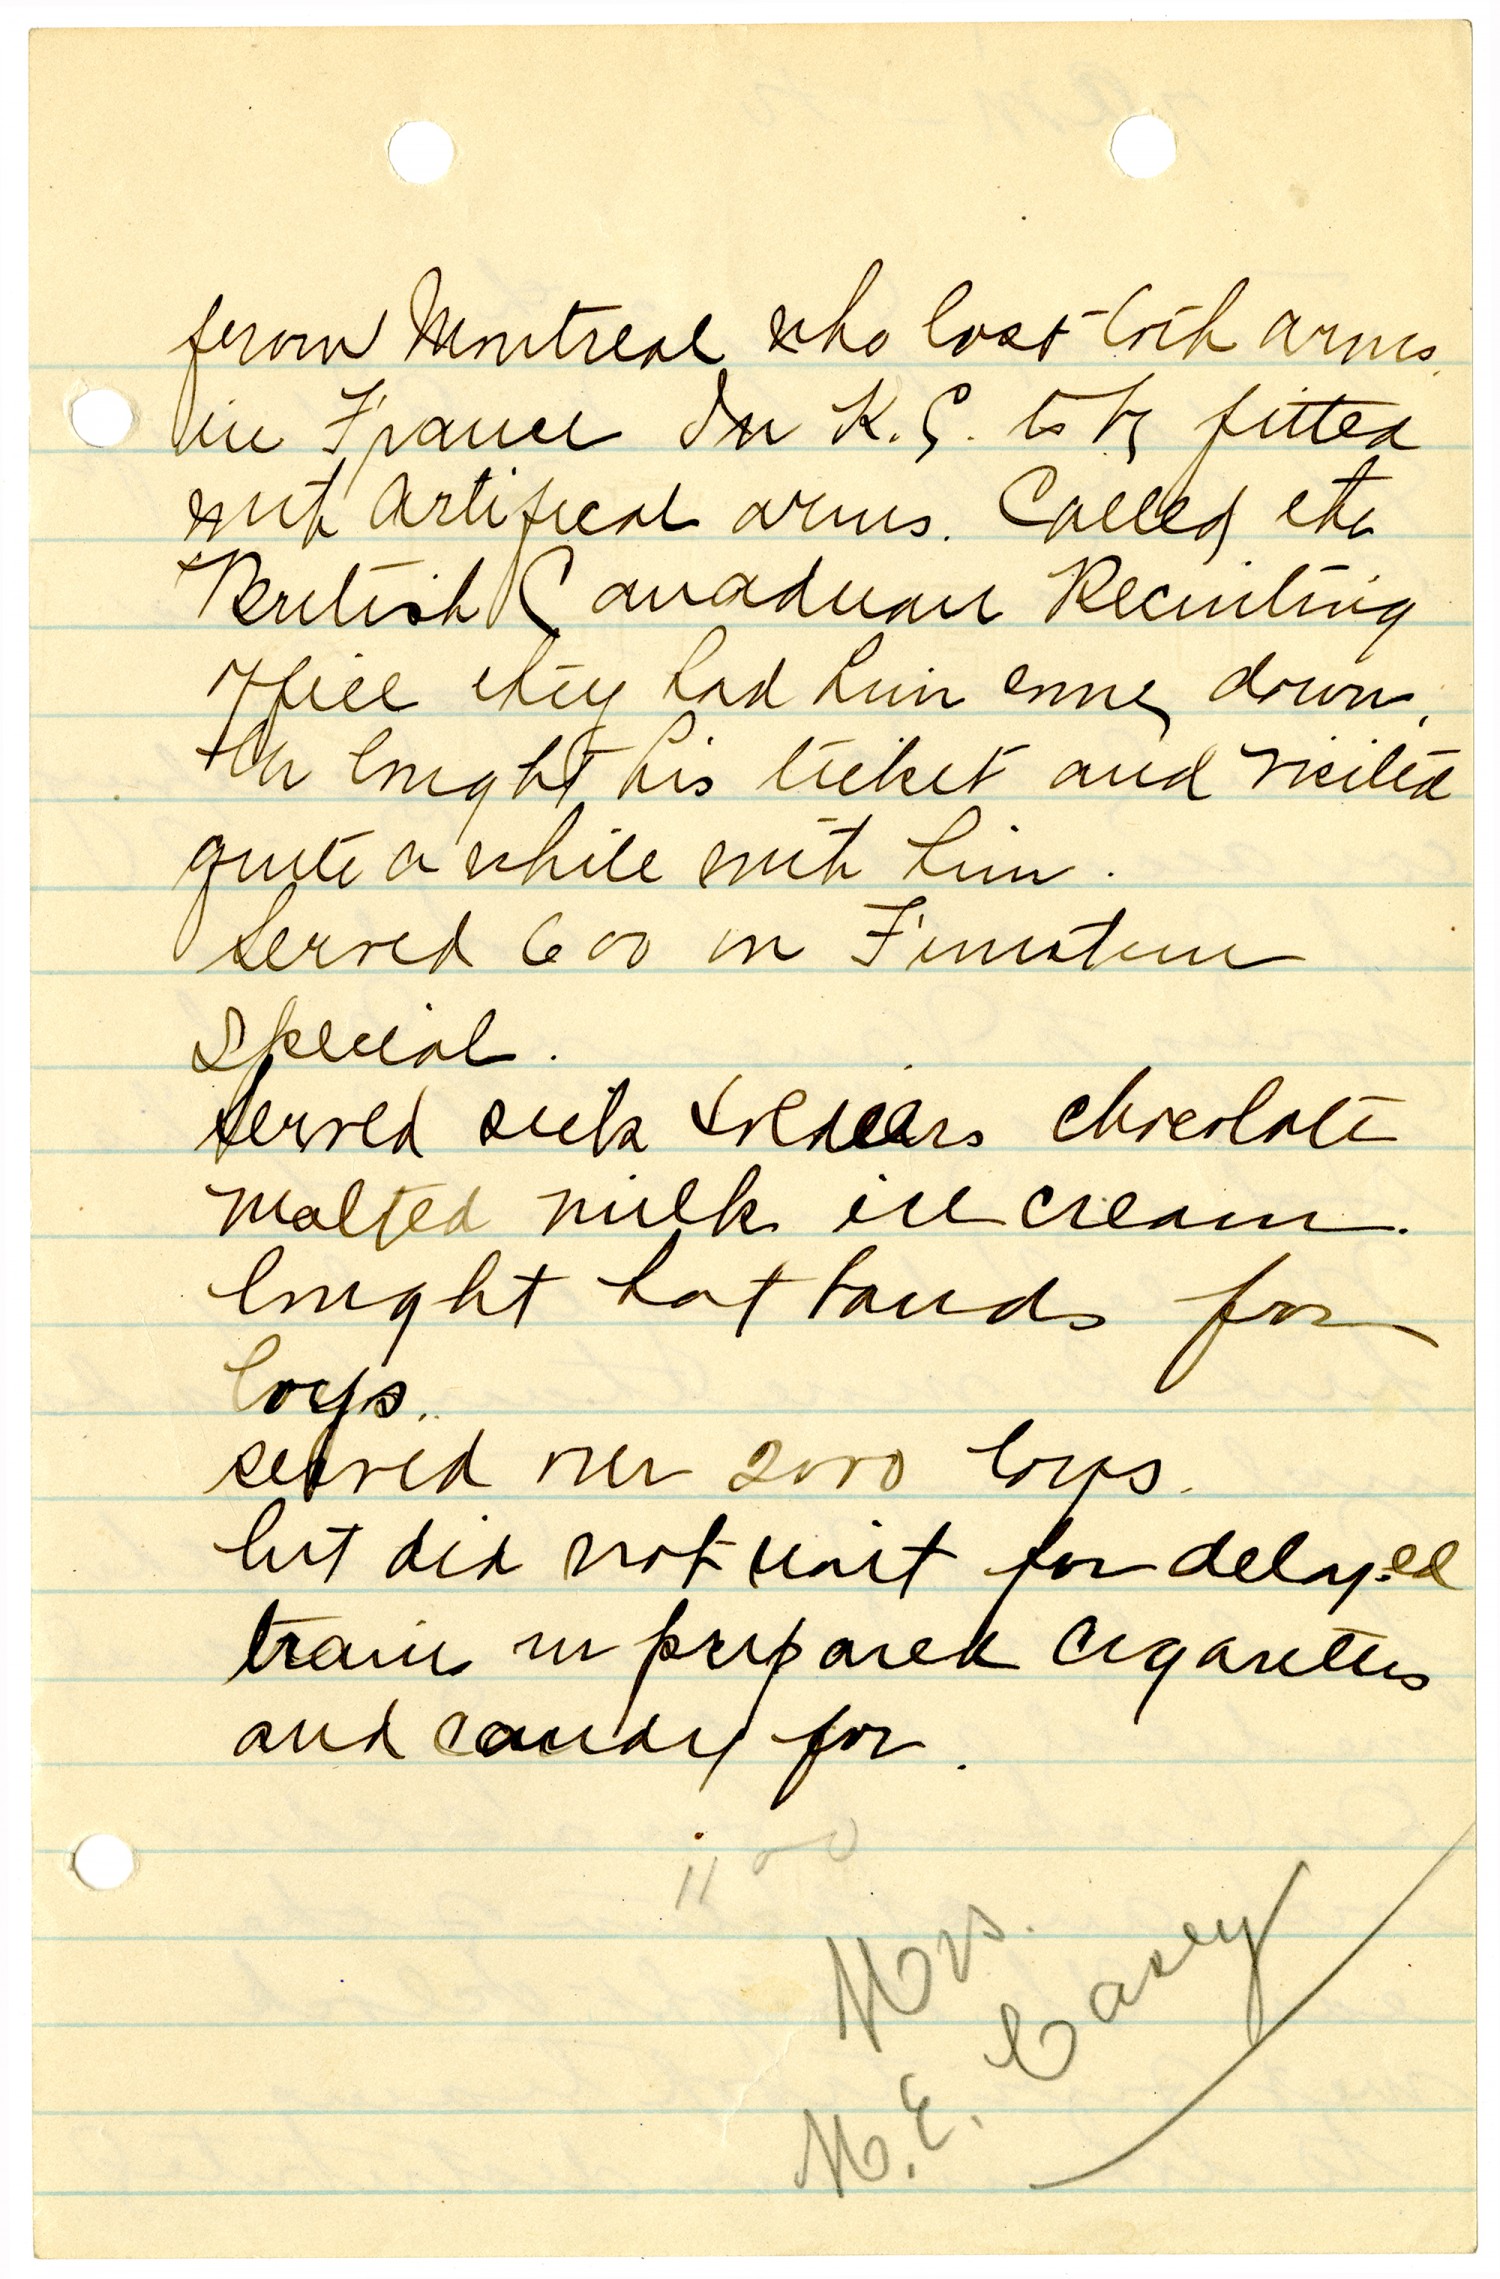 from Montreal who lost both arms.
in France In K.C. to be fitted
with artifical arms. Called the
British Canaduan Recruiting
office they had him come down,
bought his ticket and visited
quite a while with him.
Served 600 on Funston
Special.
served sick soldiers chocolate
malted milk ice cream.
bought hat bands for
boys.
served over 2000 boys.
but did not wait for delayed
train we prepared cigarettes
and candy for.
1100
Mrs.
M.E. Casey